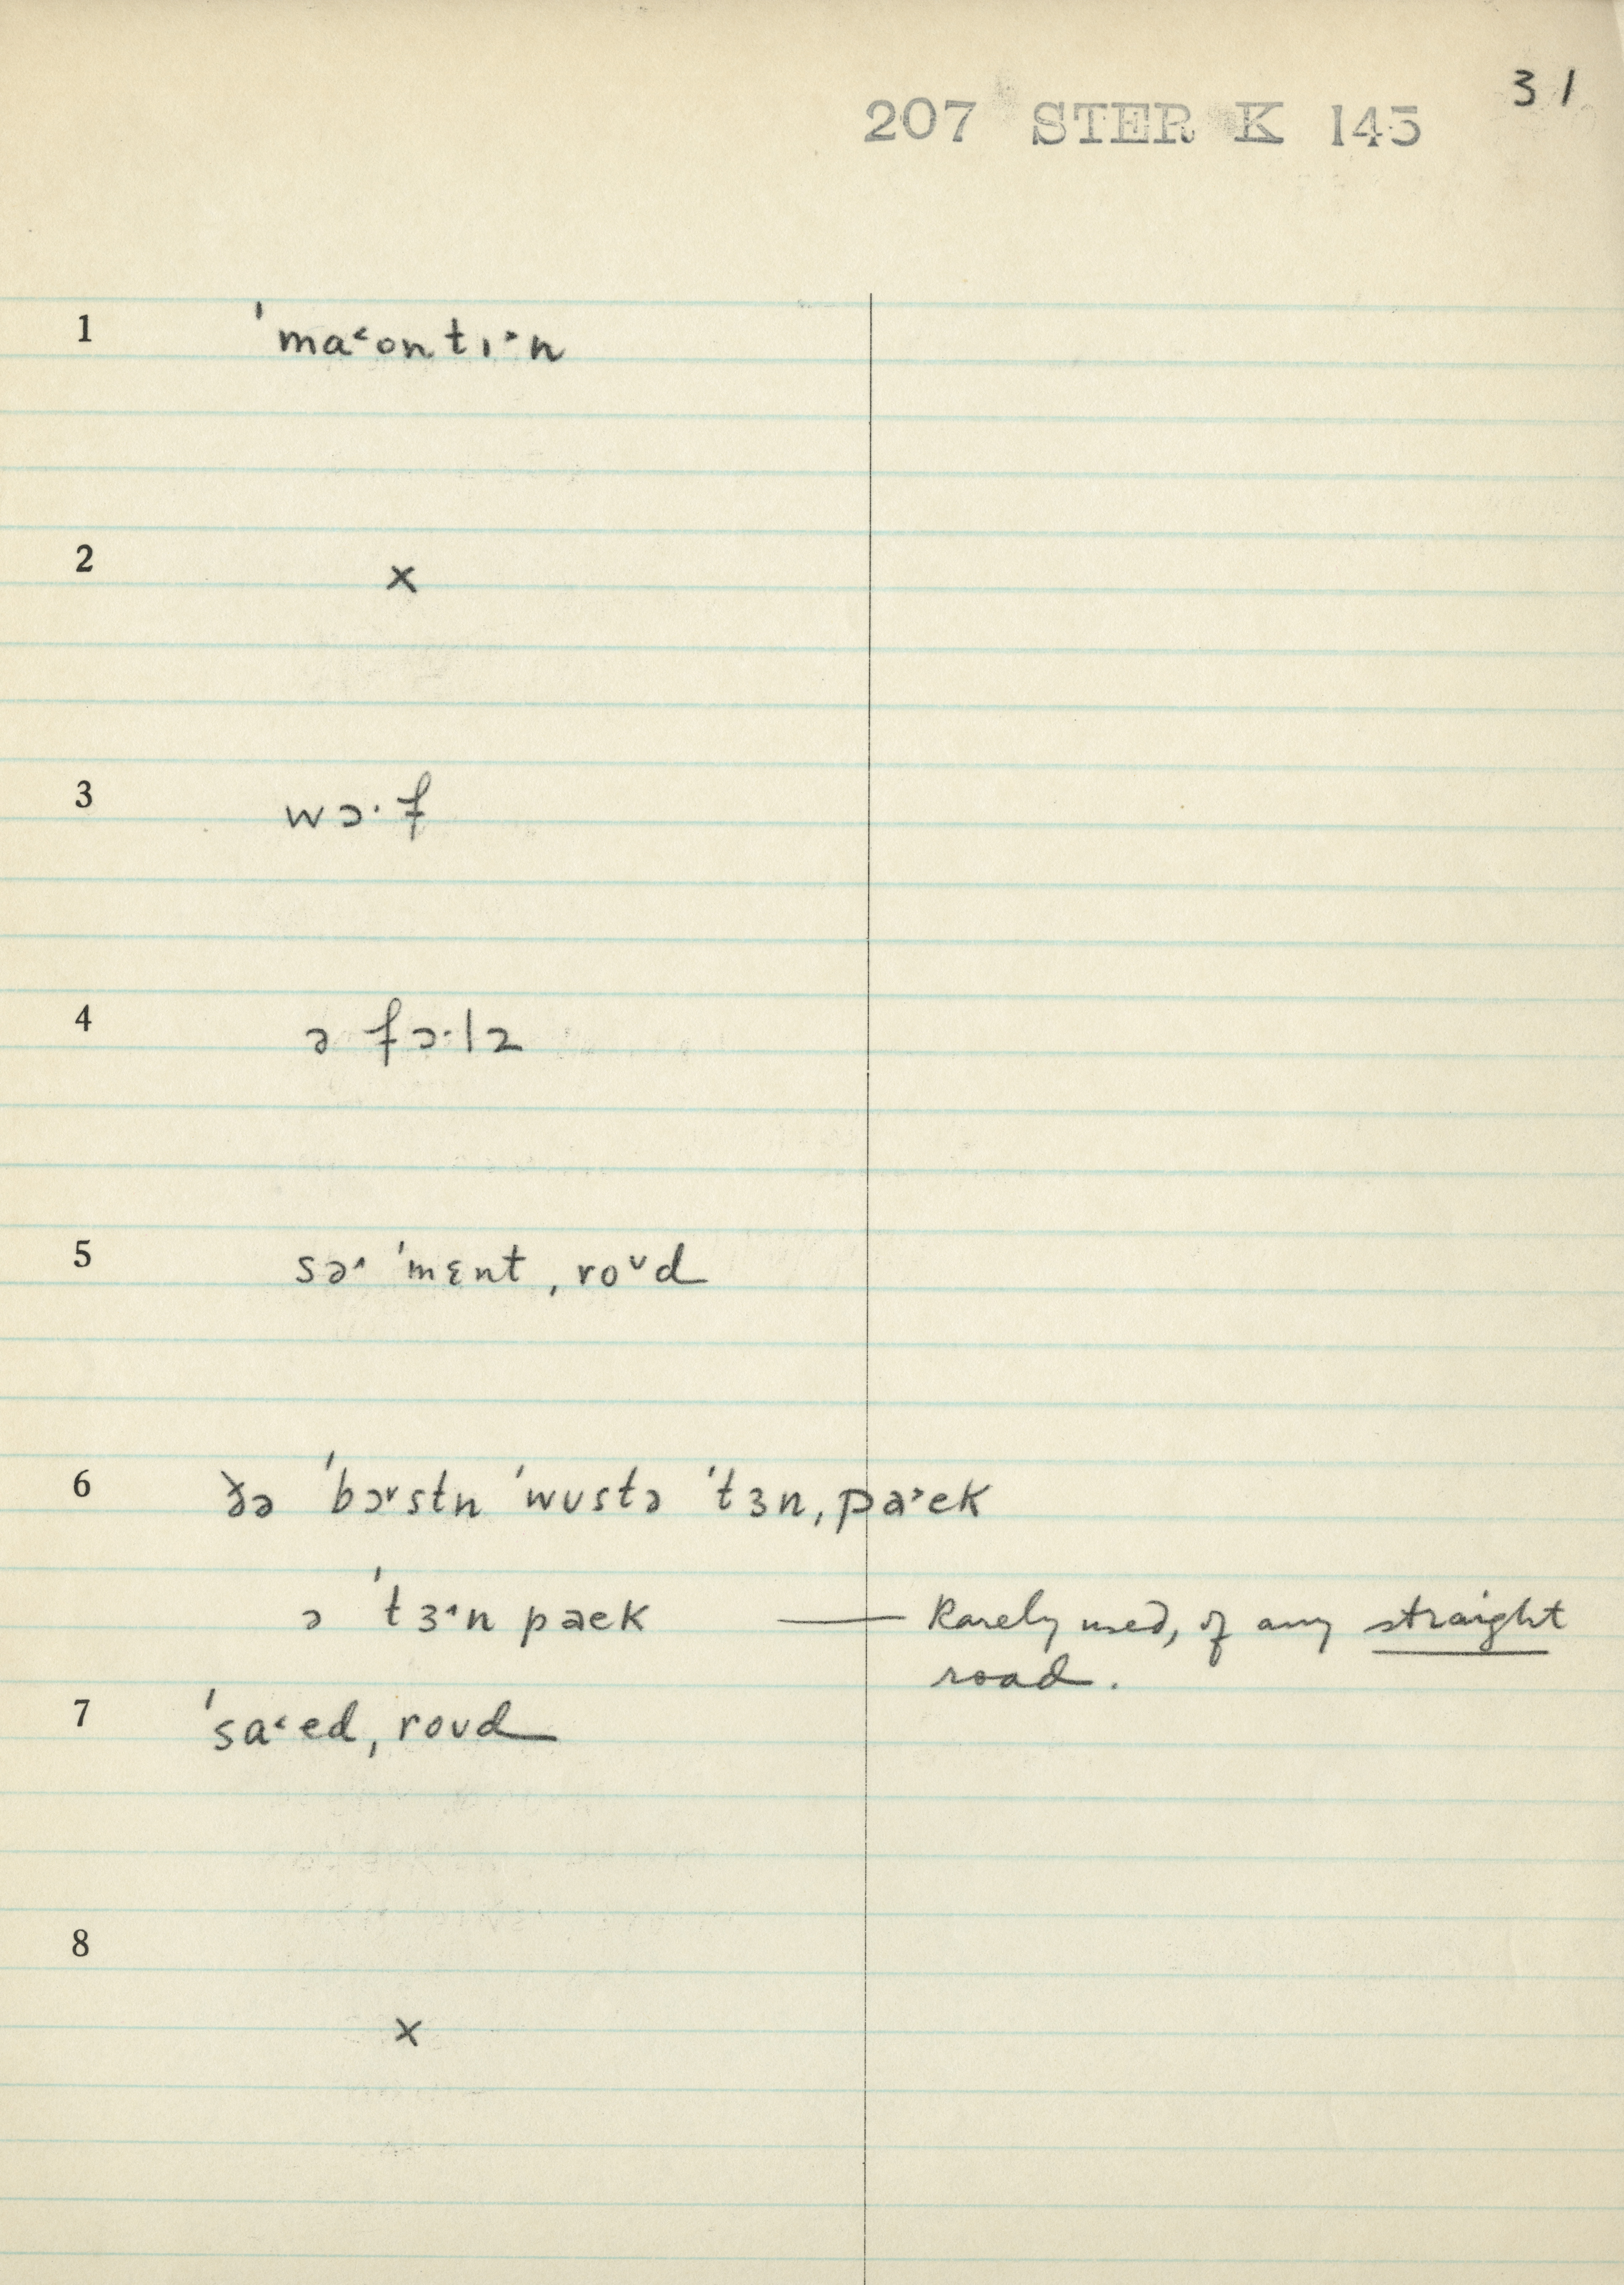 31
207 STER K 145
1 ˈma˂ontɪ˃n
2 x
3 wɔ·f
4 ə fɔ·lz
5 sə˄ ˈmɛntˌro˅d
6 ðə ˈbɔ˅stn ˈwustə ˈtɜnˌpa˃ek
ə ˈtɜ˄n paek — Rarely used, of any straight
road.
7 ˈsa˂edˌroud
8 x